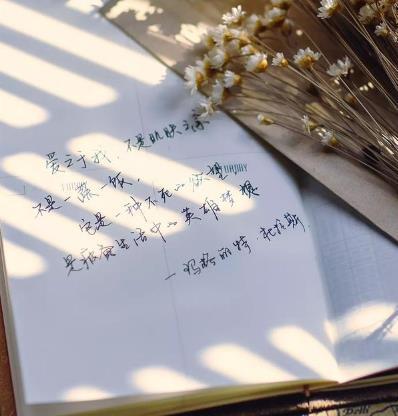 爱之于我，不是肌肤之亲
不是一蔬一饭，
它是一种不死的欲望
是疲惫生活中的英雄梦想
—玛格丽特·杜拉斯.